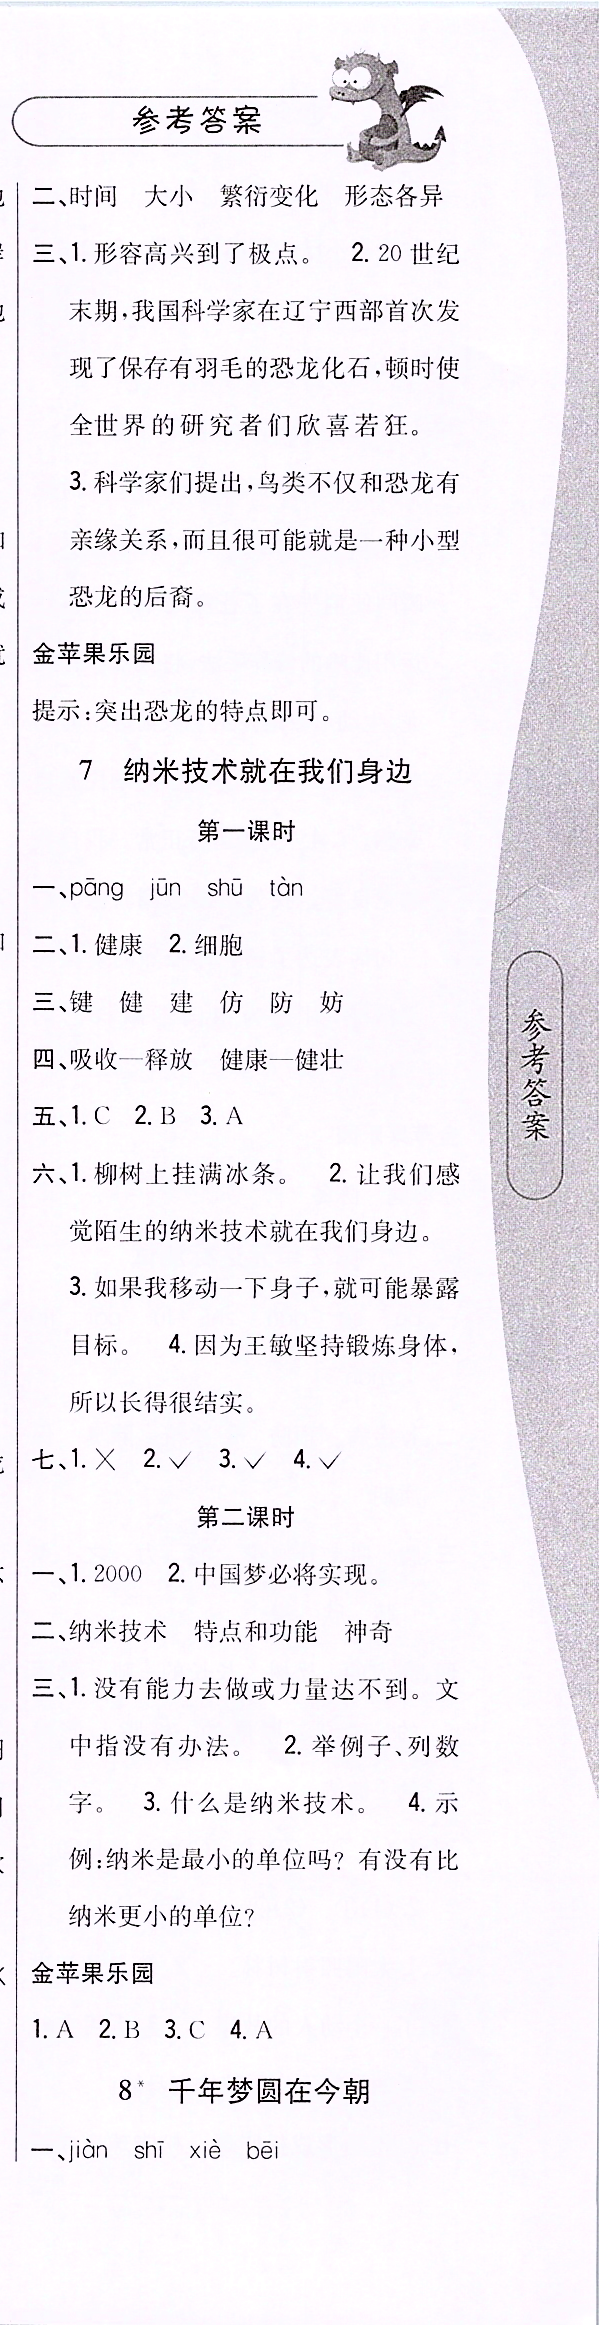 参考答案
二、时间 大小 繁衍变化 形态各异
三、1. 形容高兴到了极点。 2. 20 世纪
末期,我国科学家在辽宁西部首次发
现了保存有羽毛的恐龙化石,顿时使
全世界的研究者们欣喜若狂。
3. 科学家们提出,鸟类不仅和恐龙有
亲缘关系,而且很可能就是一种小型
恐龙的后裔。
金苹果乐园
提示:突出恐龙的特点即可。
7 纳米技术就在我们身边
第一课时
一、pāng jūn shū tàn
二、1. 健康 2. 细胞
三、键 健 建 仿 防 妨
四、吸收—释放 健康—健壮
五、1. C 2. B 3. A
六、1. 柳树上挂满冰条。 2. 让我们感
觉陌生的纳米技术就在我们身边。
3. 如果我移动一下身子,就可能暴露
目标。 4. 因为王敏坚持锻炼身体,
所以长得很结实。
七、1. ✕ 2. ✓ 3. ✓ 4. ✓
第二课时
一、1. 2000 2. 中国梦必将实现。
二、纳米技术 特点和功能 神奇
三、1. 没有能力去做或力量达不到。文
中指没有办法。 2. 举例子、列数
字。 3. 什么是纳米技术。 4. 示
例:纳米是最小的单位吗? 有没有比
纳米更小的单位?
金苹果乐园
1. A 2. B 3. C 4. A
8* 千年梦圆在今朝
一、jiàn shī xiè bēi
参考答案